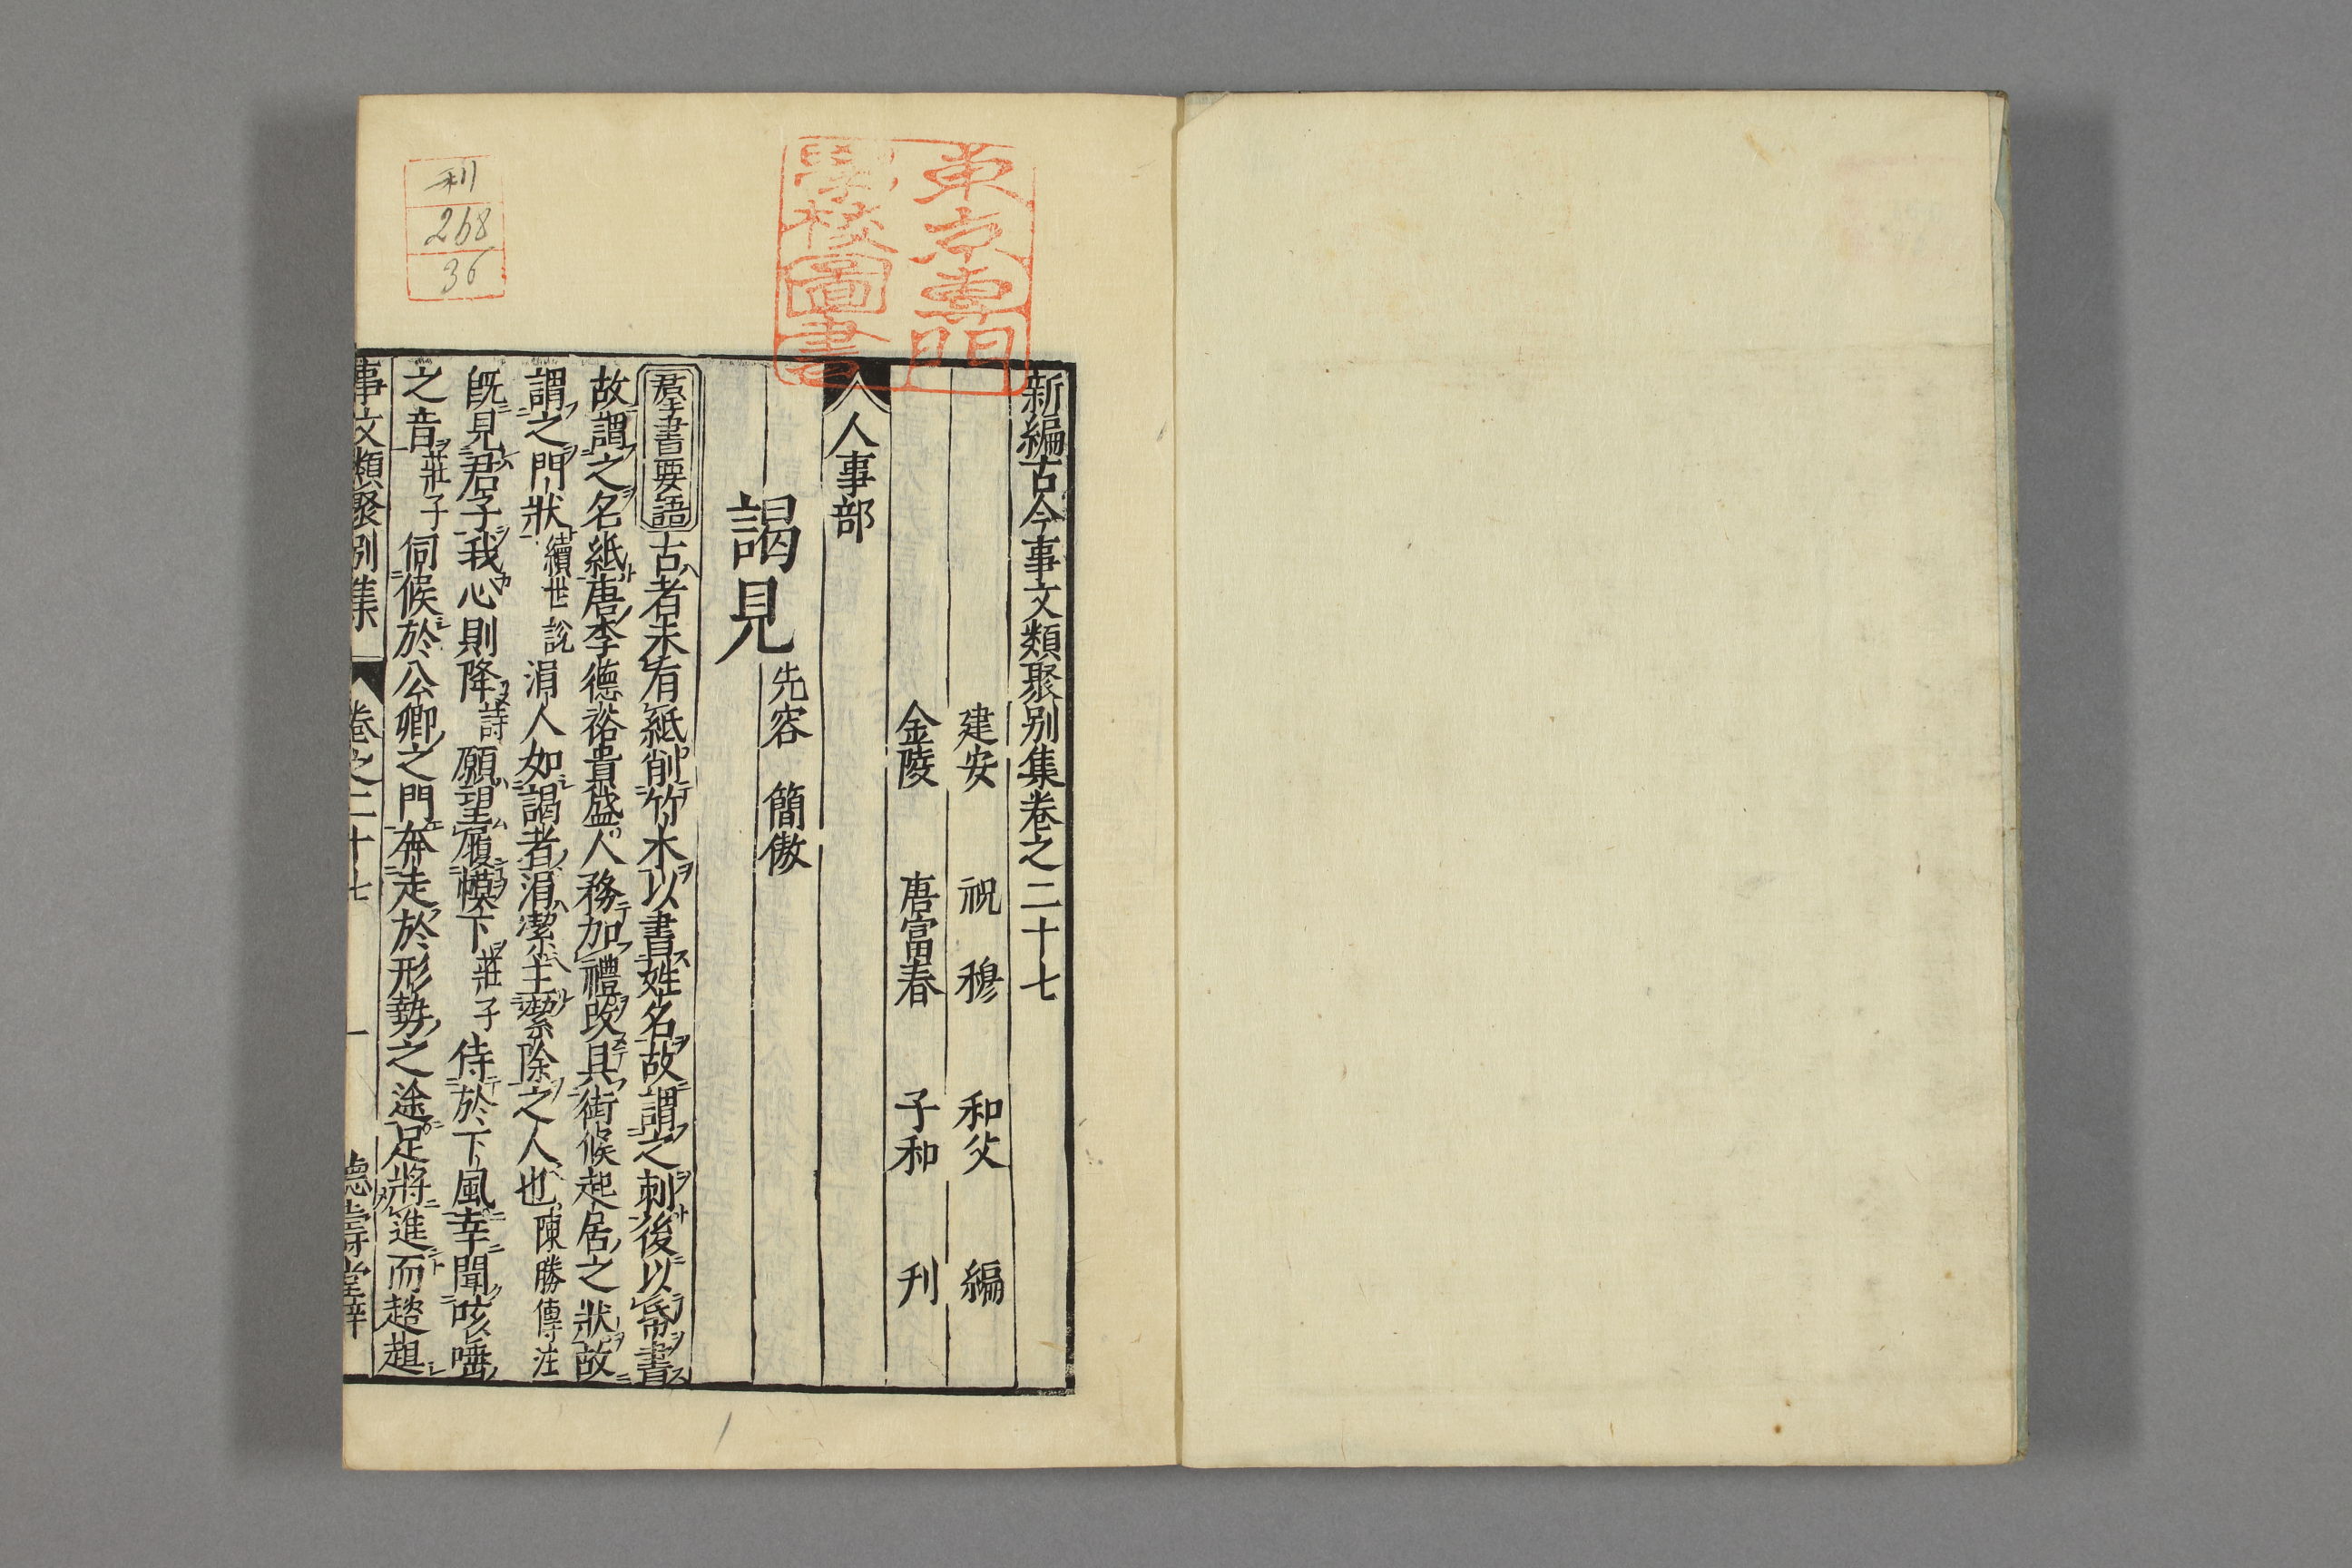 新編古今事文類聚别集卷之二十七
建安 祝穆 和父 編
金陵 唐富春 子和 刋
人事部
謁見 先容 簡傲
羣書要語 古者未有紙削竹木以書姓名故謂之刺後以帋書
故謂之名紙唐李德裕貴盛人務加禮改具銜候起居之狀故
謂之門狀 續世説 涓人如謁者涓潔主潔除之人也 陳勝傳注
既見君子我心則降 詩 願望履幙下 莊子 侍於下風幸聞咳唾
之音 莊子 伺候於公卿之門奔走於形勢之途足將進而趑趄
事文類聚别集 卷之二十七 一 德壽堂梓
東京專門
學校圖書
利
268
36